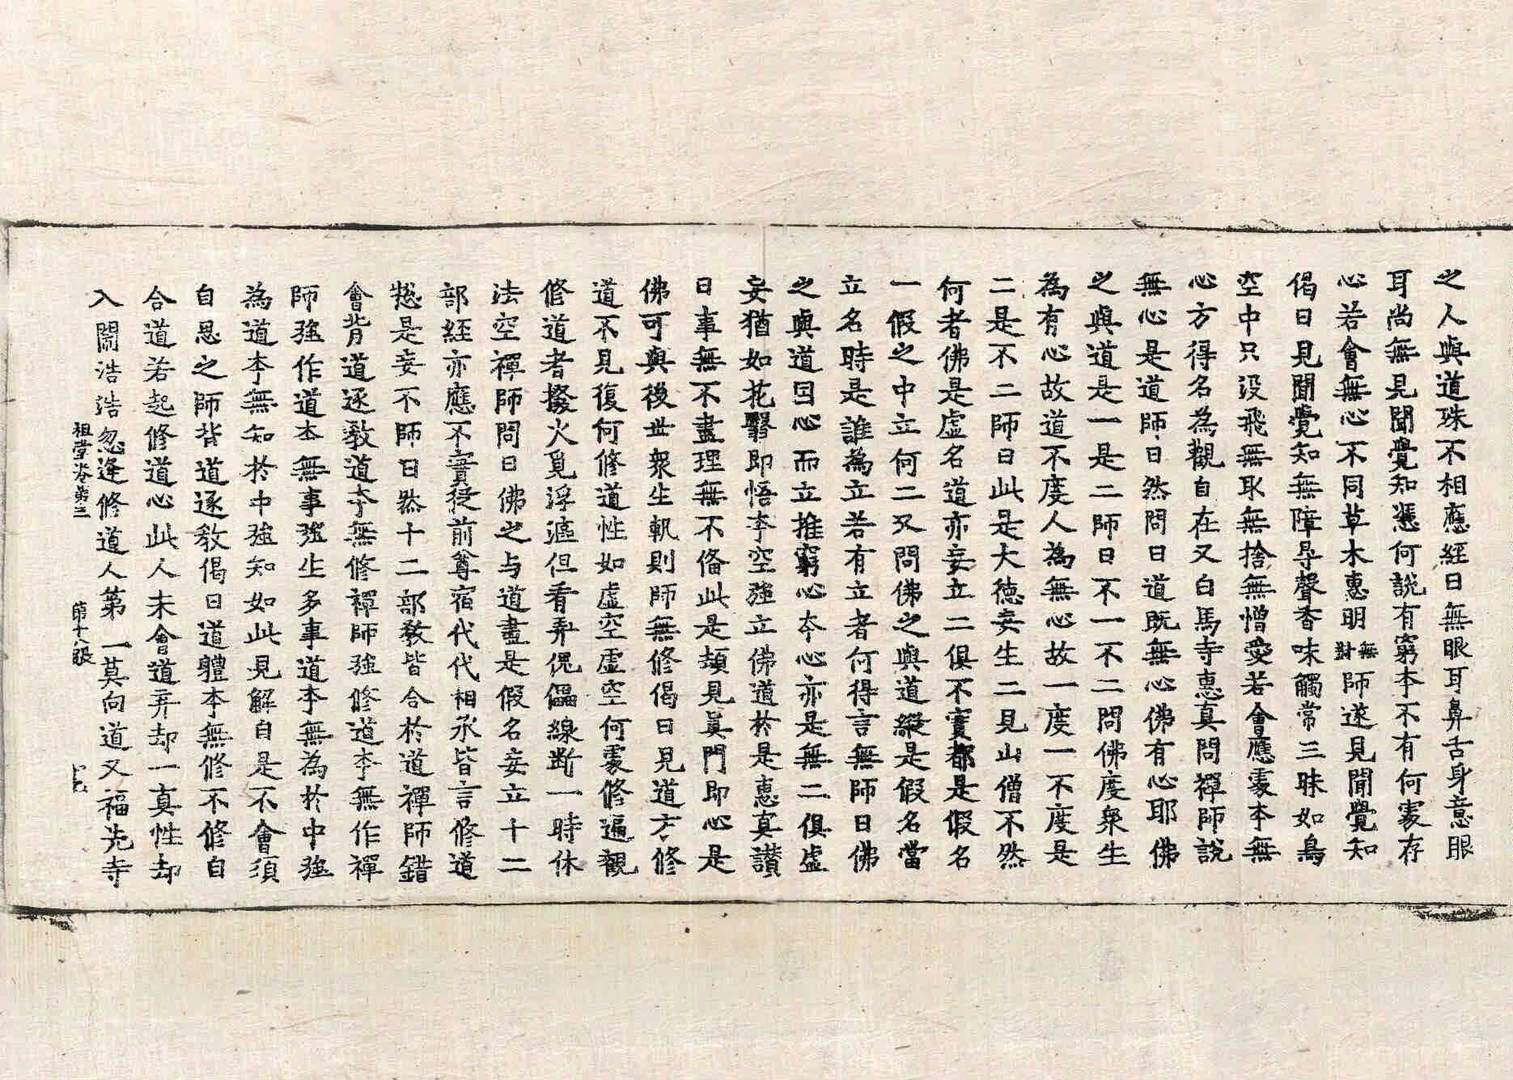 之人與道殊不相應經曰無眼耳鼻舌身意眼
耳尚無見聞覺知憑何說有窮本不有何處存
心若會無心不同草木惠明無對師遂見聞覺知
偈曰見聞覺知無障㝵聲香味觸常三昧如鳥
空中只没飛無取無捨無憎愛若會應處本無
心方得名為觀自在又白馬寺惠真問禪師說
無心是道師曰然問曰道既無心佛有心耶佛
之與道是一是二師曰不一不二問佛度衆生
為有心故道不度人為無心故一度一不度是
二是不二師曰此是大德妄生二見山僧不然
何者佛是虛名道亦妄立二俱不實都是假名
一假之中立何二又問佛之與道縱是假名當
立名時是誰為立若有立者何得言無師曰佛
之與道因心而立推窮心本心亦是無二俱虛
妄猶如花翳即悟本空強立佛道於是惠真讚
曰事無不盡理無不俻此是頓見真門即心是
佛可與後世衆生軌則師無修偈曰見道方修
道不見復何修道性如虛空虛空何處修遍觀
修道者撥火覓浮漚但看弄傀儡線断一時休
法空禪師問曰佛之与道盡是假名妄立十二
部經亦應不實從前尊宿代代相承皆言修道
惣是妄不師曰然十二部教皆合於道禪師錯
會背道逐教道本無修禪師強修道本無作禪
師強作道本無事強生多事道本無為於中強
為道本無知於中強知如此見解自是不會須
自思之師背道逐教偈曰道體本無修不修自
合道若起修道心此人未會道弃却一真性却
入鬧浩浩忽逢修道人第一莫向道又福先寺
祖堂卷第三 第十八張